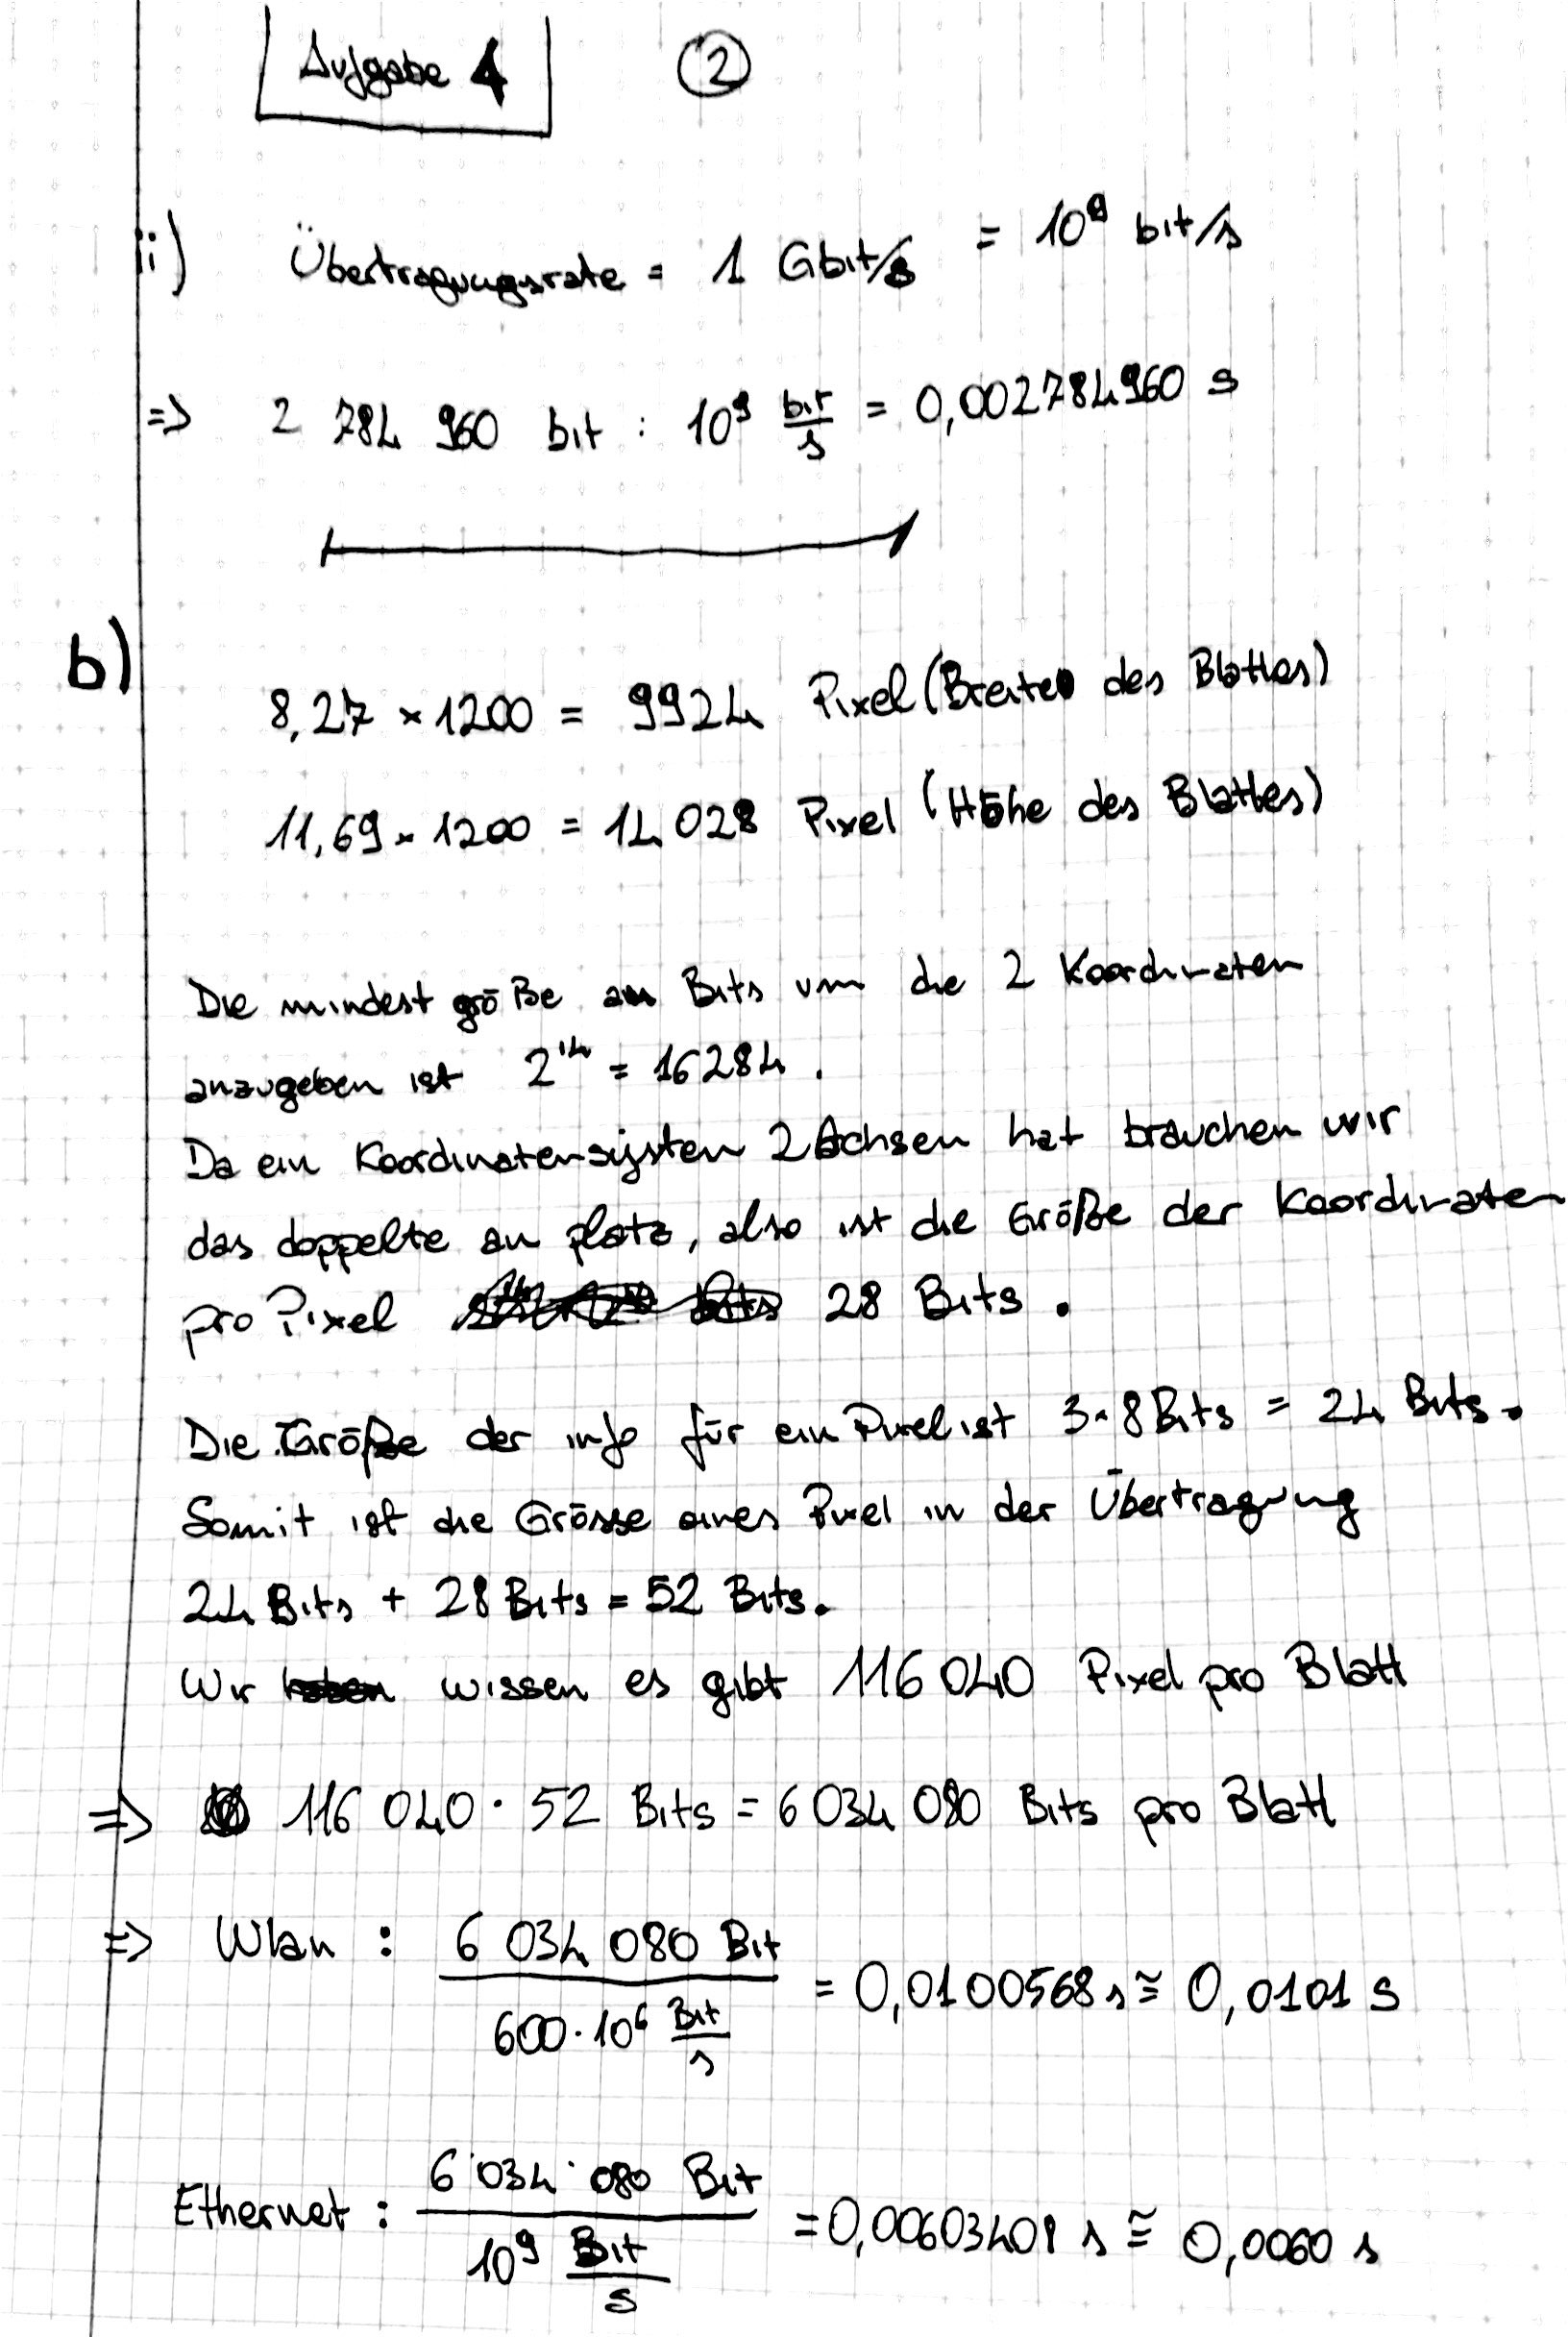 Aufgabe 4 2
ii) Übertragungsrate = 1 Gbit/s = 10⁹ bit/s
=> 2 784 960 bit : 10⁹ bit/s = 0,002784960 s
b)
8,27 × 1200 = 9924 Pixel (Breite des Blattes)
11,69 × 1200 = 14 028 Pixel (Höhe des Blattes)
Die mindest größe an Bits um die 2 Koordinaten
anzugeben ist 2¹⁴ = 16284.
Da ein Koordinatensystem 2 Achsen hat brauchen wir
das doppelte an platz, also ist die Größe der Koordinaten
pro Pixel 28 Bits.
Die Größe der info für ein Pixel ist 3 × 8 Bits = 24 Bits.
Somit ist die Grösse eines Pixel in der Übertragung
24 Bits + 28 Bits = 52 Bits.
Wir wissen es gibt 116 040 Pixel pro Blatt
=> 116 040 · 52 Bits = 6 034 080 Bits pro Blatt
=> Wlan : 6 034 080 Bit / 600 · 10⁶ Bit/s = 0,0100568 s ≅ 0,0101 s
Ethernet : 6 034 080 Bit / 10⁹ Bit/s = 0,00603408 s ≅ 0,0060 s